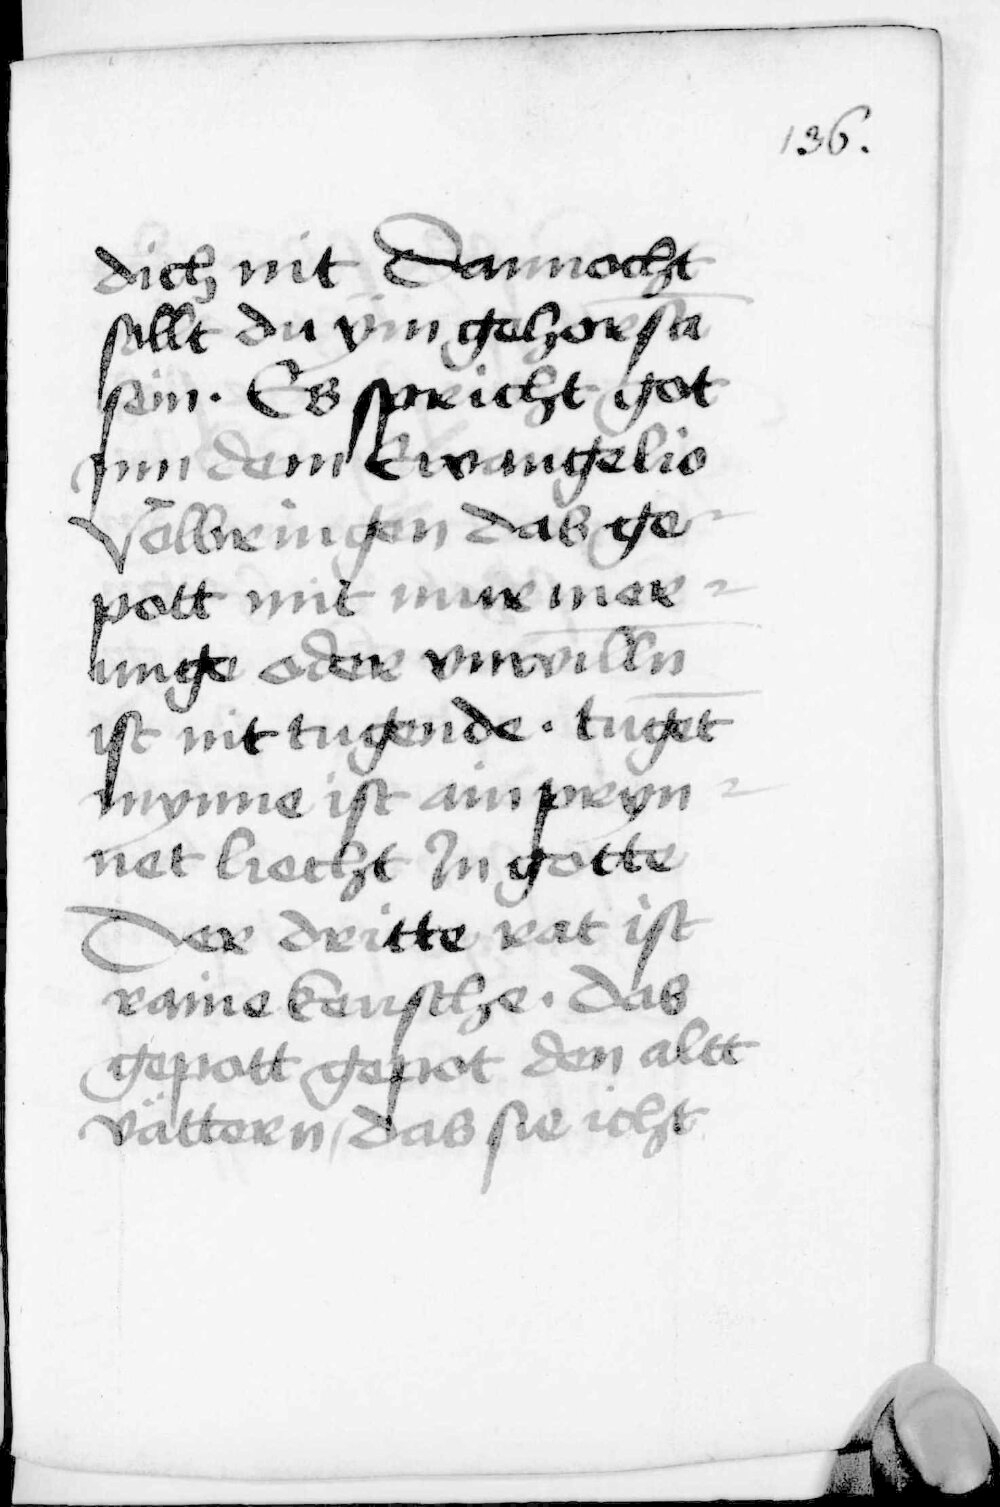 136.
dich nit Dannocht
sollt du ÿm gehorsā
sein. Es spricht got
ynn dem Ewangelio
Volbringen das ge-
pott mit murmer-
unge oder vnwilln̄
ist nit tugende. tuget̄
mynne ist ain pryn-
net liecht In gotte
Der dritte rat ist
raine keusche. Das
gepott gepot den altt
vättern / das sie icht